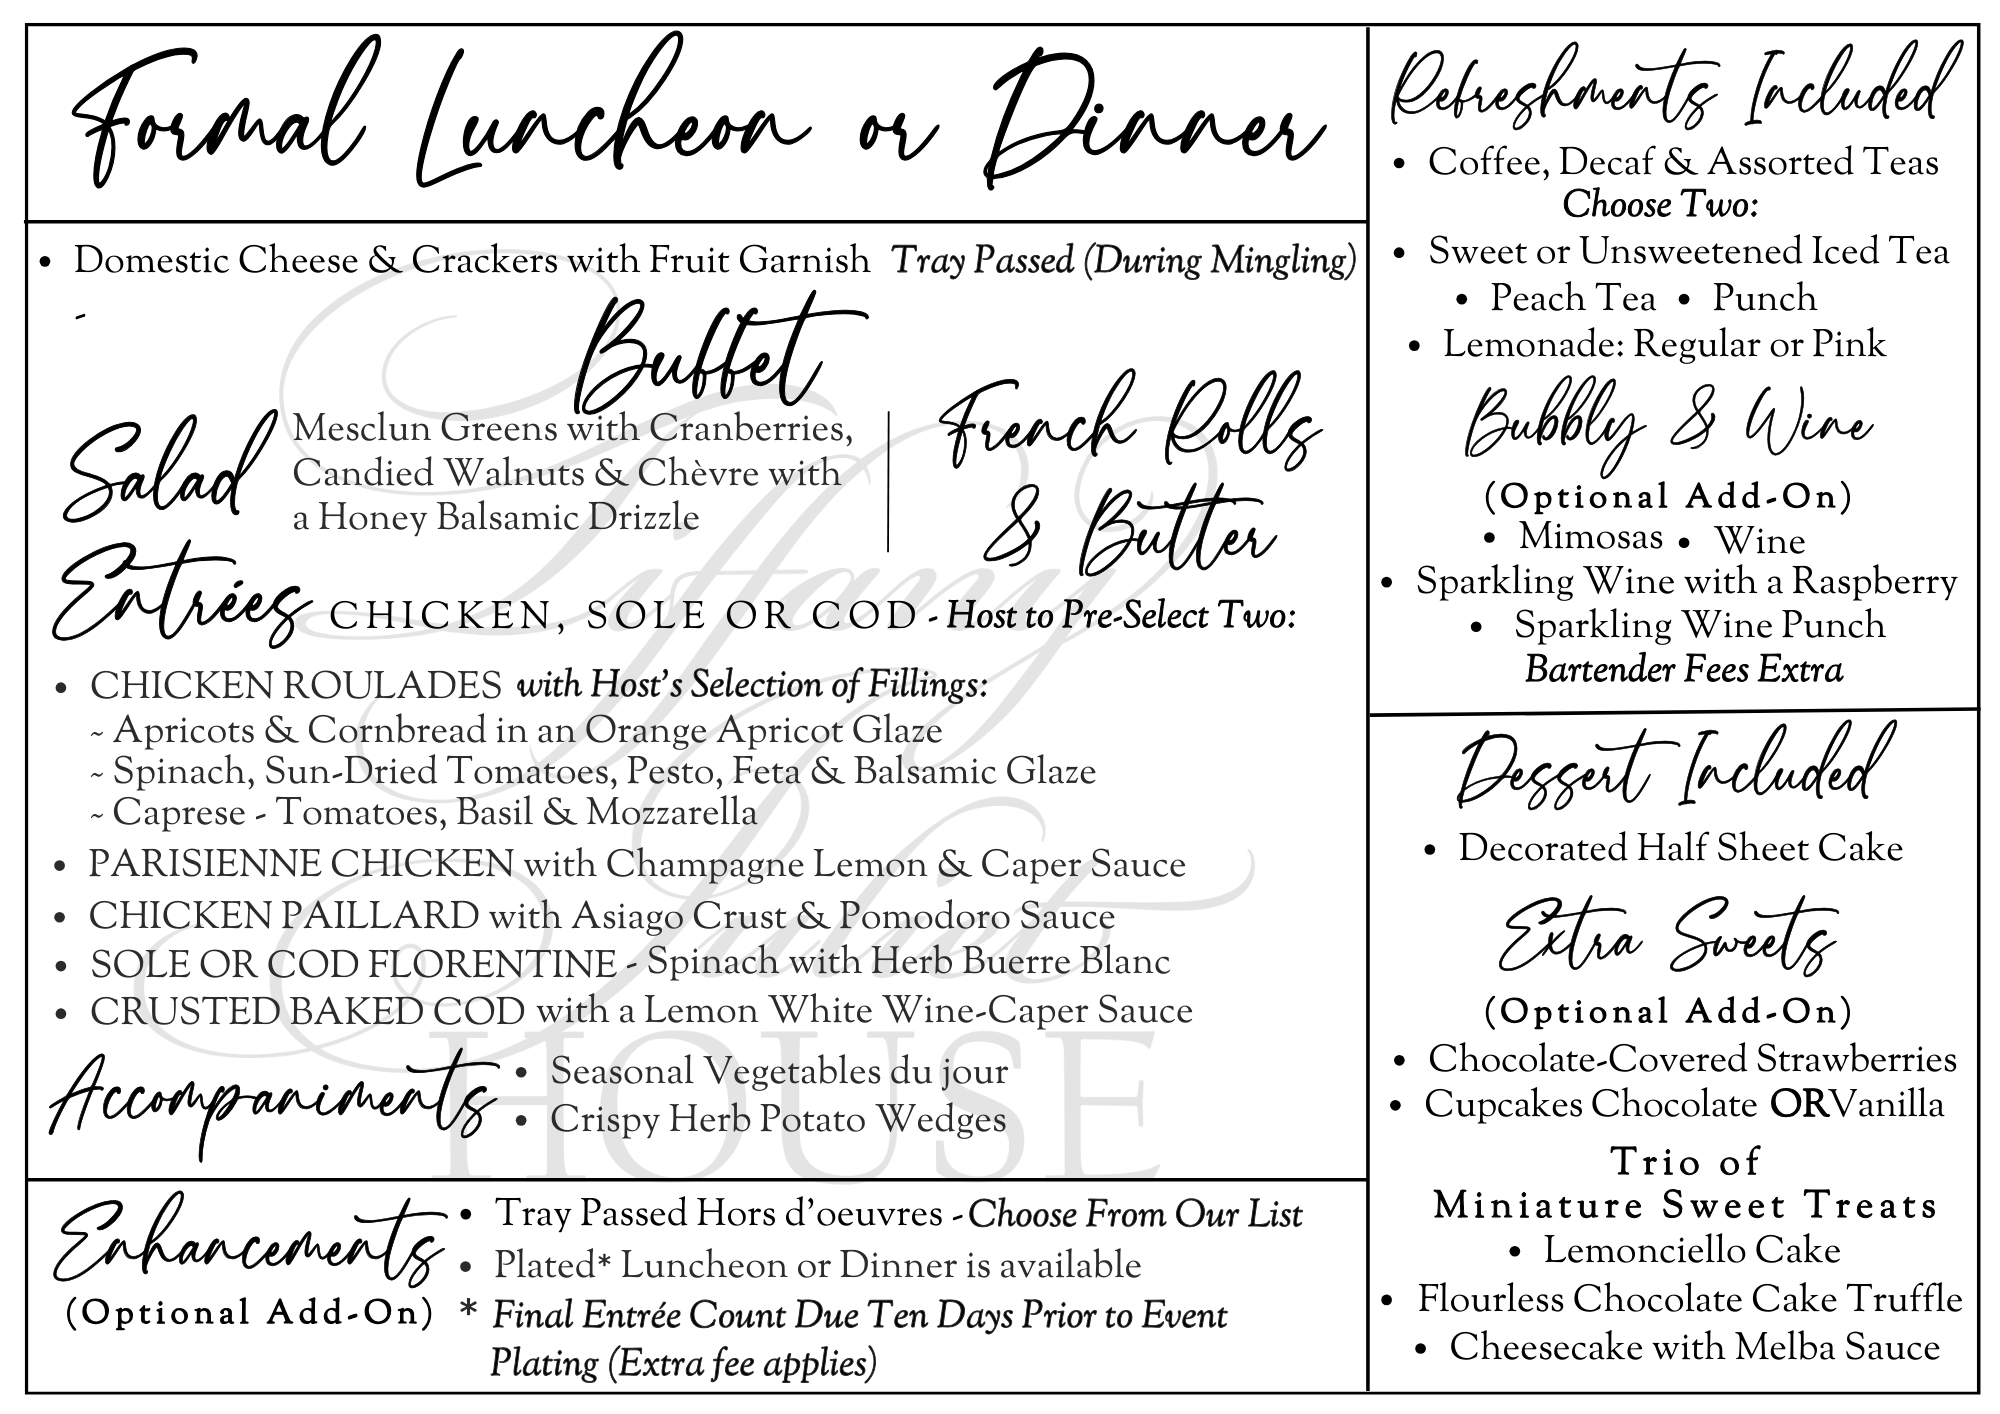 Formal Luncheon or Dinner
• Domestic Cheese & Crackers with Fruit Garnish Tray Passed (During Mingling)
-
Buffet
Salad
Mesclun Greens with Cranberries,
Candied Walnuts & Chèvre with
a Honey Balsamic Drizzle
French Rolls
& Butter
Entrées CHICKEN, SOLE OR COD - Host to Pre-Select Two:
• CHICKEN ROULADES with Host's Selection of Fillings:
~ Apricots & Cornbread in an Orange Apricot Glaze
~ Spinach, Sun-Dried Tomatoes, Pesto, Feta & Balsamic Glaze
~ Caprese - Tomatoes, Basil & Mozzarella
• PARISIENNE CHICKEN with Champagne Lemon & Caper Sauce
• CHICKEN PAILLARD with Asiago Crust & Pomodoro Sauce
• SOLE OR COD FLORENTINE - Spinach with Herb Buerre Blanc
• CRUSTED BAKED COD with a Lemon White Wine-Caper Sauce
Accompaniments
• Seasonal Vegetables du jour
• Crispy Herb Potato Wedges
Tiffany
Juliet
HOUSE
Enhancements
(Optional Add-On)
• Tray Passed Hors d'oeuvres - Choose From Our List
• Plated* Luncheon or Dinner is available
* Final Entrée Count Due Ten Days Prior to Event
Plating (Extra fee applies)
Refreshments Included
• Coffee, Decaf & Assorted Teas
Choose Two:
• Sweet or Unsweetened Iced Tea
• Peach Tea • Punch
• Lemonade: Regular or Pink
Bubbly & Wine
(Optional Add-On)
• Mimosas • Wine
• Sparkling Wine with a Raspberry
• Sparkling Wine Punch
Bartender Fees Extra
Dessert Included
• Decorated Half Sheet Cake
Extra Sweets
(Optional Add-On)
• Chocolate-Covered Strawberries
• Cupcakes Chocolate ORVanilla
Trio of
Miniature Sweet Treats
• Lemonciello Cake
• Flourless Chocolate Cake Truffle
• Cheesecake with Melba Sauce